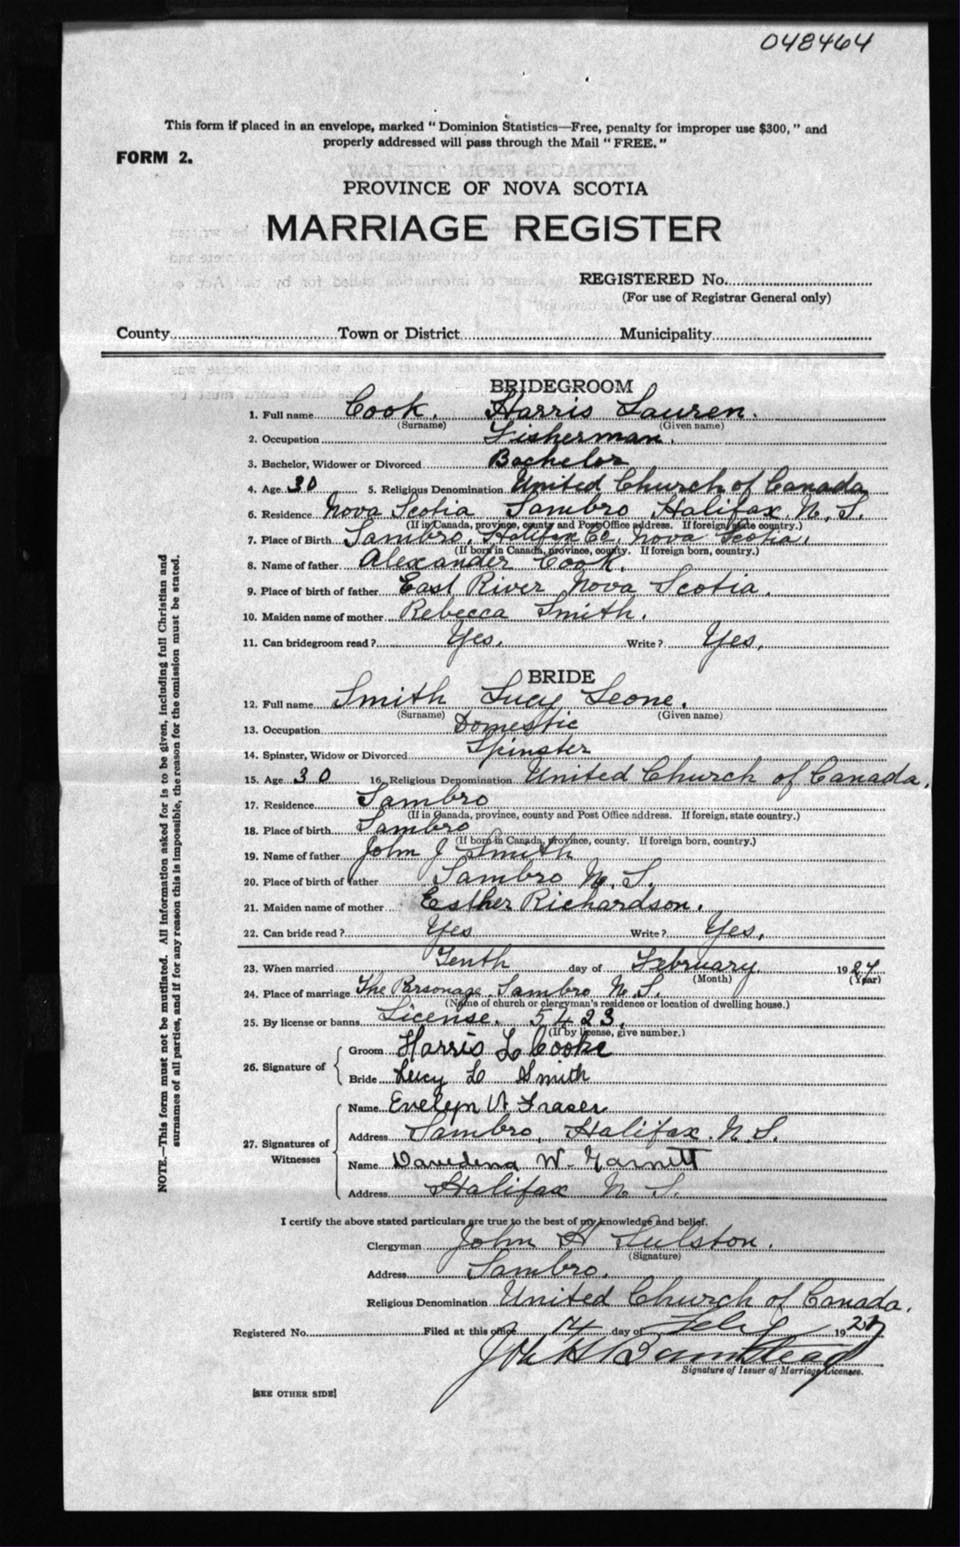 048464
This form if placed in an envelope, marked "Dominion Statistics—Free, penalty for improper use $300," and
properly addressed will pass through the Mail "FREE."
FORM 2.
PROVINCE OF NOVA SCOTIA
MARRIAGE REGISTER
REGISTERED No.
(For use of Registrar General only)
County Town or District Municipality
BRIDEGROOM
1. Full name Cook. Harris Lauren.
(Surname) (Given name)
2. Occupation Fisherman.
3. Bachelor, Widower or Divorced Bachelor
4. Age 30 5. Religious Denomination United Church of Canada
6. Residence Nova Scotia Sambro Halifax N. S.
(If in Canada, province, county and Post Office address. If foreign, state country.)
7. Place of Birth Sambro, Halifax Co, Nova Scotia.
(If born in Canada, province, county. If foreign born, country.)
8. Name of father Alexander Cook.
9. Place of birth of father East River Nova Scotia.
10. Maiden name of mother Rebecca Smith.
11. Can bridegroom read? Yes. Write? Yes.
BRIDE
12. Full name Smith Lucy Leone.
(Surname) (Given name)
13. Occupation Domestic
14. Spinster, Widow or Divorced Spinster
15. Age 30 16. Religious Denomination United Church of Canada.
17. Residence Sambro
(If in Canada, province, county and Post Office address. If foreign, state country.)
18. Place of birth Sambro
(If born in Canada, province, county. If foreign born, country.)
19. Name of father John J Smith
20. Place of birth of father Sambro N. S.
21. Maiden name of mother Esther Richardson.
22. Can bride read? Yes Write? Yes.
23. When married Tenth day of February 1927
(Month) (Year)
24. Place of marriage The Parsonage. Sambro N. S.
(Name of church or clergyman's residence or location of dwelling house.)
25. By license or banns License. 5423.
(If by license, give number.)
26. Signature of Groom Harris L Cooke
Bride Lucy L Smith
27. Signatures of Witnesses Name Evelyn A Fraser
Address Sambro, Halifax. N. S.
Name Davedena W. Garnett
Address Halifax N. S.
I certify the above stated particulars are true to the best of my knowledge and belief.
Clergyman John H
(Signature)
Address Sambro.
Religious Denomination United Church of Canada.
Registered No. Filed at this office 14 day of Feby 1927
Signature of Issuer of Marriage Licenses.
[SEE OTHER SIDE]
NOTE.—This form must not be mutilated. All information asked for is to be given, including full Christian and
surnames of all parties, and if for any reason this is impossible, the reason for the omission must be stated.